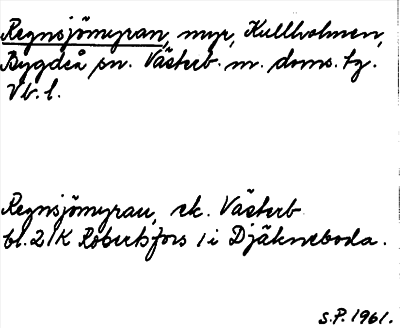 Regnsjömyran, myr, Kullholmen,
Bygdeå sn. Västerb. m. doms. tg.
Vb. l.
Regnsjömyran, ek. Västerb
bl. 21K Robertsfors 1 i Djäkneboda.
S.P. 1961.